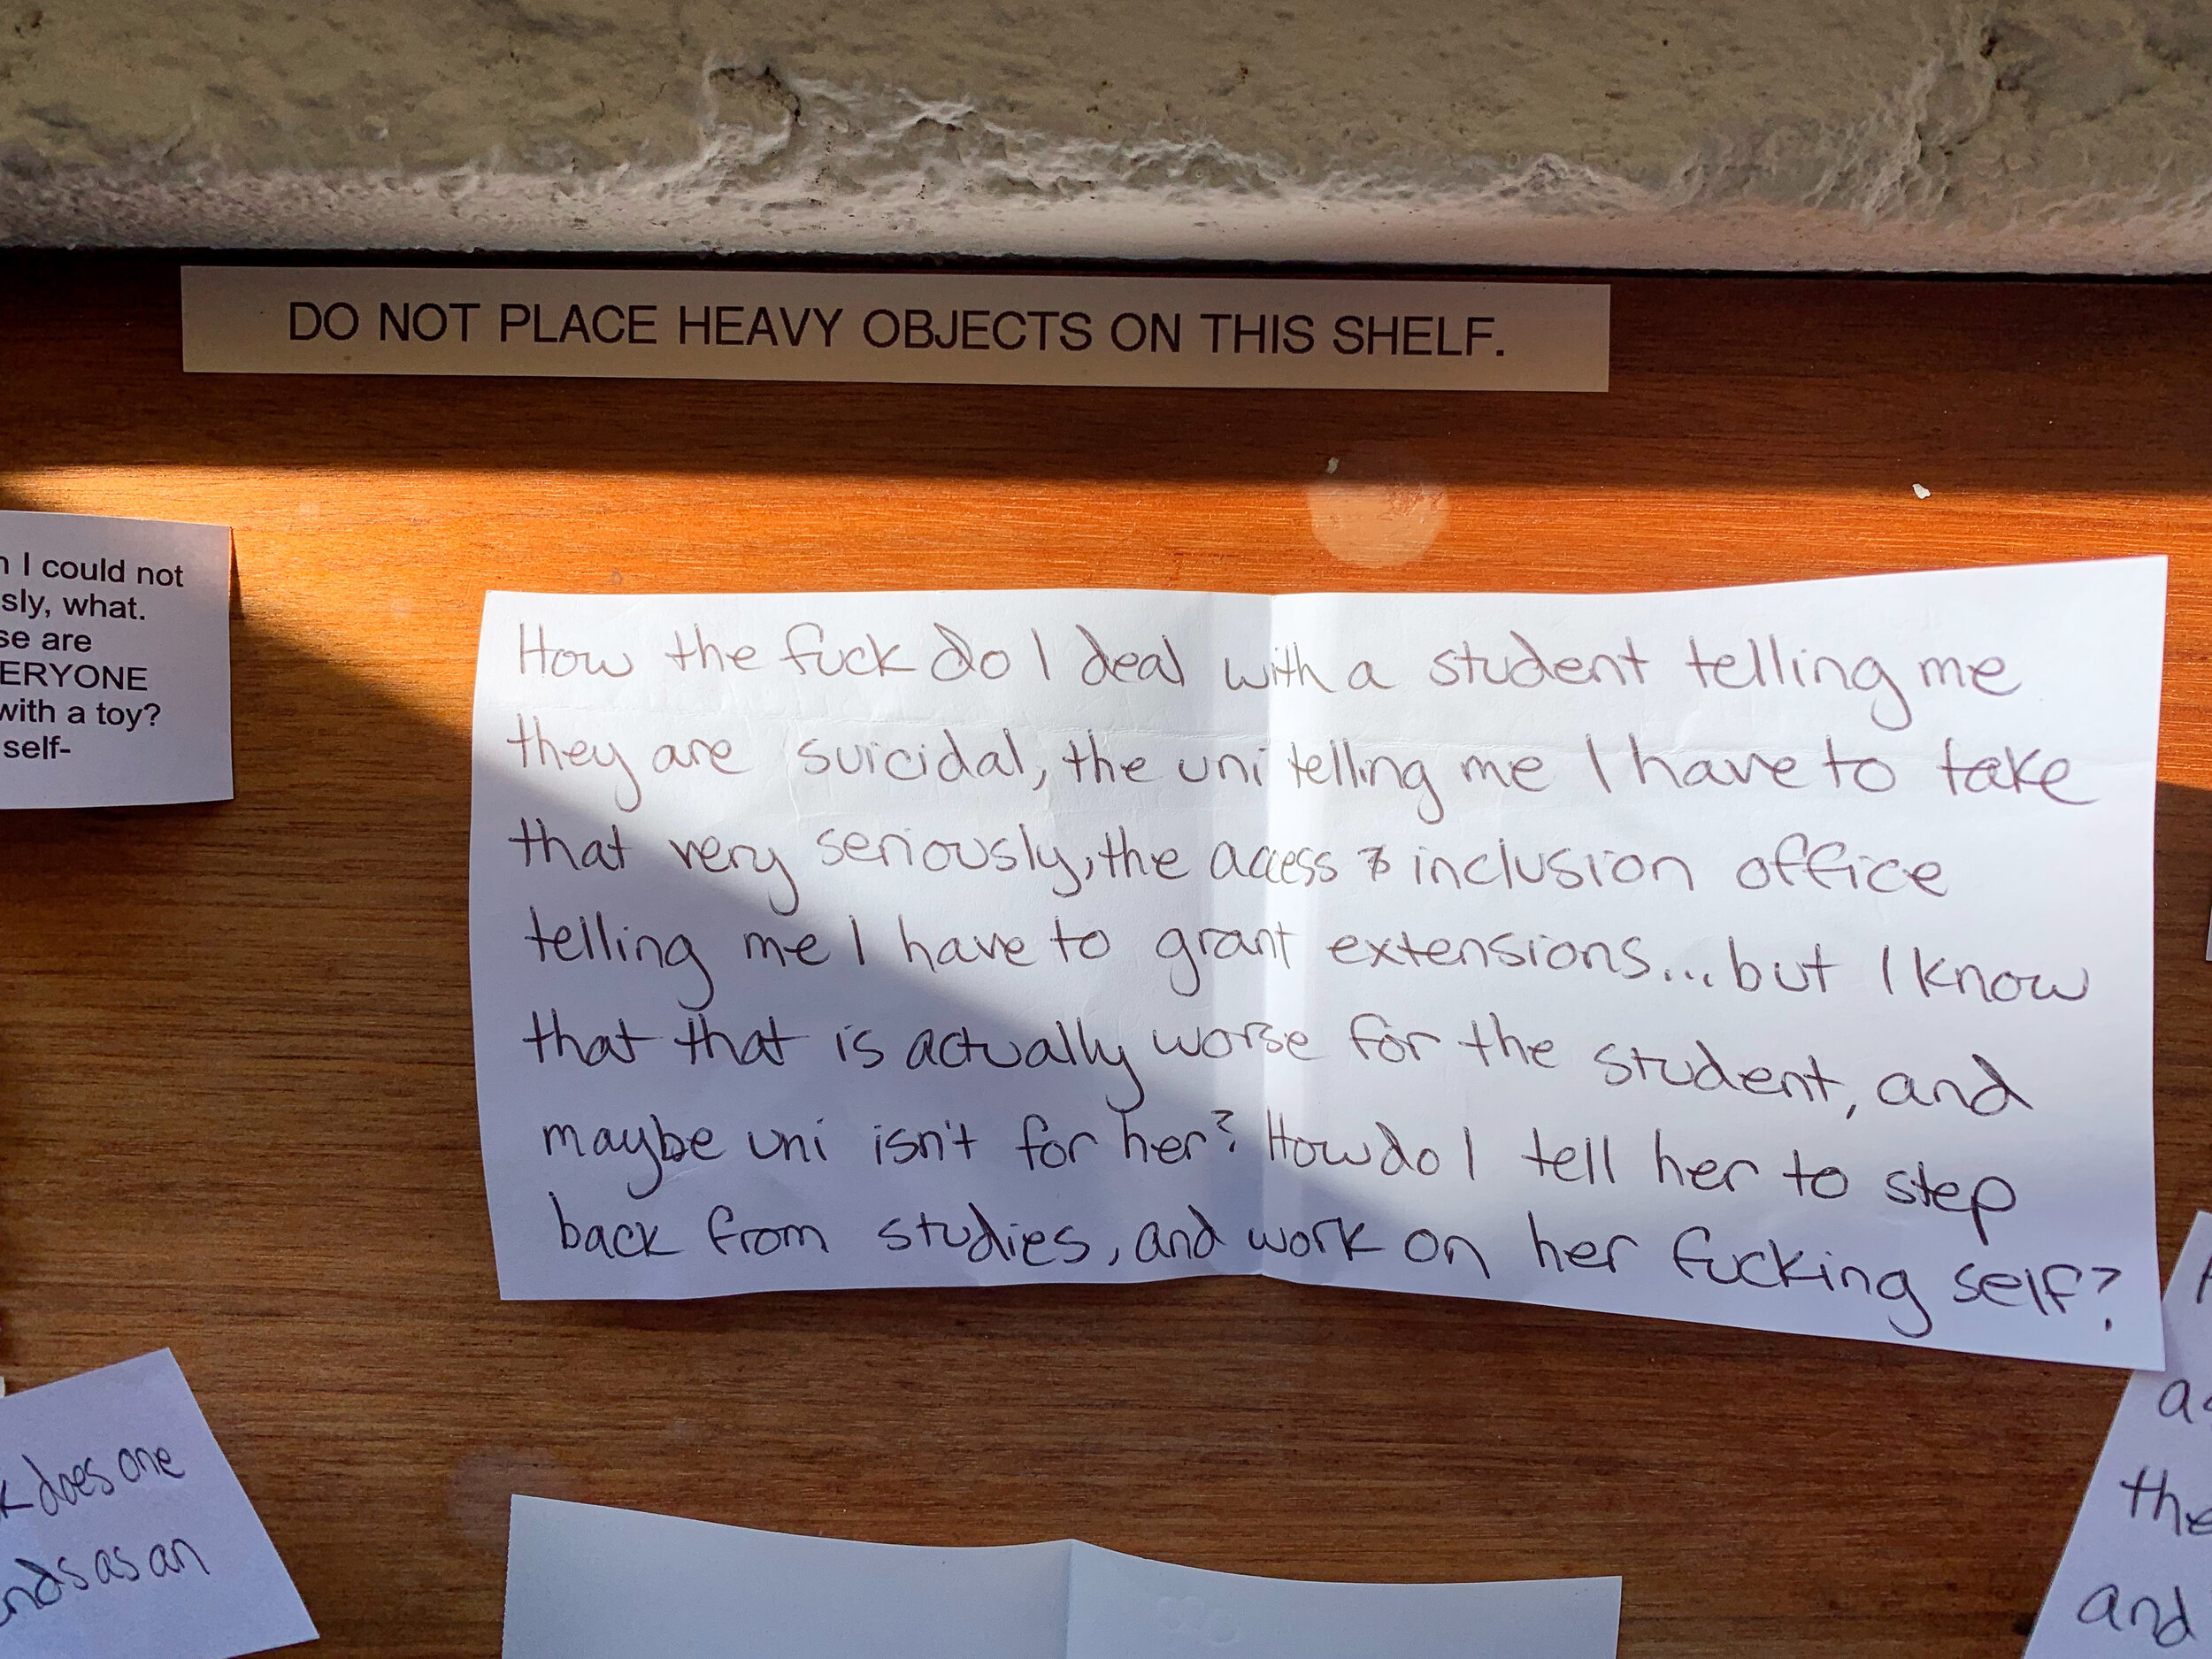 DO NOT PLACE HEAVY OBJECTS ON THIS SHELF.
I could not
sly, what.
se are
ERYONE
with a toy?
self-
How the fuck do I deal with a student telling me
they are suicidal, the uni telling me I have to take
that very seriously, the access & inclusion office
telling me I have to grant extensions... but I know
that that is actually worse for the student, and
maybe uni isn't for her? How do I tell her to step
back from studies, and work on her fucking self?
does one
as an
the
and